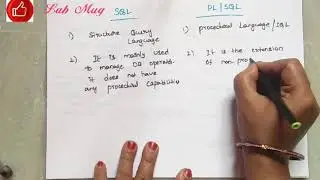 Lab Mug
SQL
PL/SQL
1) Structure Query
Language
2) It is mainly used
to manage DB operati
it does not have
any procedural Capabiliti
1) procedural Language/SQL
2) It is the extension
of non-pro